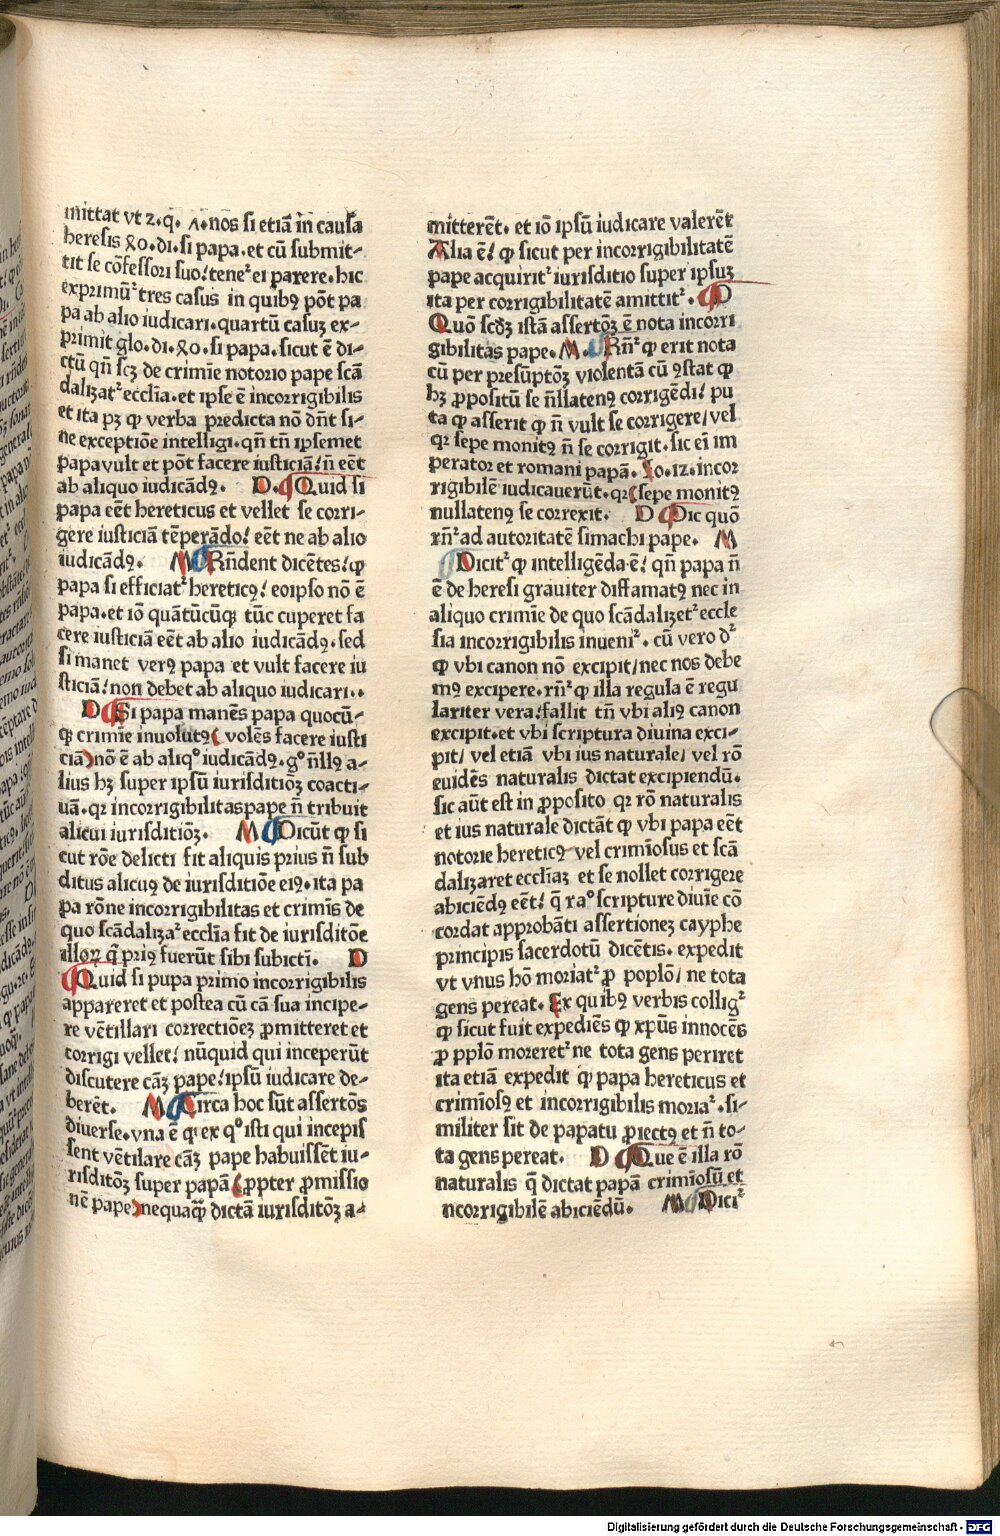 mittat vt 2. q. 7. nos si etiā in causa
heresis xo. di. si papa. et cū submit-
tit se cōfessori suo! teneꝰ ei parere. hic
exprimūꝰ tres casus in quibꝯ pōt pa
pa ab alio iudicari. quartū casuꝫ ex-
primit glo. di. xo. si papa. sicut ē di-
ctū qn̄ scꝫ de crimīe notorio pape scā
dalizatꝰ ecclīa. et ipse ē incorrigibilis
et ita pꝫ ꝙ verba predicta nō dn̄t si-
ne exceptiōe intelligi. qn̄ tn̄ ipsemet
papa vult et pōt facere iusticiā! n̄ eēt
ab aliquo iudicādꝯ. D. Quid si
papa eēt hereticus et vellet se corri-
gere iusticiā tēperādo! eēt ne ab alio
iudicādꝯ. M Rn̄dent dicētes! ꝙ
papa si efficiatꝰ hereticꝯ! eoipso nō ē
papa. et iō quātūcūqꝫ tūc cuperet fa
cere iusticiā eēt ab alio iudicādꝯ. sed
si manet verꝯ papa et vult facere iu
sticiā! non debet ab aliquo iudicari..
D Si papa manēs papa quocū-
qꝫ crimīe inuolutꝯ( volēs facere iusti
ciā) nō ē ab aliqº iudicādꝯ. gº n̄llꝯ a-
lius hꝫ super ipsū iurisditiōꝫ coacti-
uā. qꝛ incorrigibilitas pape n̄ tribuit
alicui iurisditiōꝫ. M Dicūt ꝙ si
cut rōe delicti fit aliquis prius n̄ sub
ditus alicuꝯ de iurisditiōe eiꝯ. ita pa
pa rōne incorrigibilitas et crimīs de
quo scādalizaꝰ ecclīa fit de iurisditōe
illoꝝ q̄ priꝯ fuerūt sibi subicti. D
Quid si pupa primo incorrigibilis
appareret et postea cū cā sua incipe-
re vētillari correctiōeꝫ ꝓmitteret et
corrigi vellet! nūquid qui inceperūt
discutere cāꝫ pape! ipsū iudicare de-
berēt. M Circa hoc sūt assertōs
diuerse. vna ē ꝙ ex qº isti qui incepis
sent vētilare cāꝫ pape habuissēt iu-
risditōꝫ super papā( ꝓpter ꝓmissio
nē pape) nequaꝙ̄ dictā iurisditōꝫ a-
mitterēt. et iō ipsū iudicare valerēt
Alia ē! ꝙ sicut per incorrigibilitatē
pape acquiritꝰ iurisditio super ipsuꝫ
ita per corrigibilitatē amittitꝰ. D
Quō scdꝫ istā assertōꝫ ē nota incorri
gibilitas pape. M. Rn̄ꝰ ꝙ erit nota
cū per presūptōꝫ violentā cū ꝯstat ꝙ
hꝫ ꝓpositū se n̄llatenꝯ corrigēdi! pu
ta ꝙ asserit ꝙ n̄ vult se corrigere/ vel
qꝛ sepe monitꝯ n̄ se corrigit. sic eī im
perator et romani papā. Io. 12. incor
rigibilē iudicauerūt. qꝛ( sepe monitꝯ
nullatenꝯ se correxit. D Dic quō
rn̄ꝰ ad autoritatē simachi pape. M
Dicitꝰ ꝙ intelligēda ē! qn̄ papa n̄
ē de heresi grauiter diffamatꝯ nec in
aliquo crimīe de quo scādalizetꝰ eccle
sia incorrigibilis inueniꝰ. cū vero dꝰ
ꝙ vbi canon nō excipit/ nec nos debe
mꝯ excipere. rn̄ꝰ ꝙ illa regula ē regu
lariter vera! fallit tn̄ vbi aliꝯ canon
excipit. et vbi scriptura diuina exci-
pit/ vel etiā vbi ius naturale/ vel rō
euidēs naturalis dictat excipiendū.
sic aūt est in ꝓposito qꝛ rō naturalis
et ius naturale dictāt ꝙ vbi papa eēt
notorie hereticꝯ vel crimīosus et scā
dalizaret ecclīaꝫ et se nollet corrigere
abiciēdꝯ eēt! q̄ raº scripture diuīe cō
cordat approbāti assertioneꝫ cayphe
principis sacerdotū dicētis. expedit
vt vnus hō moriatꝰ ꝓ poplō/ ne tota
gens pereat. Ex quibꝯ verbis colligꝰ
ꝙ sicut fuit expediēs ꝙ xpūs innocēs
ꝓ pplō moreretꝰ ne tota gens periret
ita etiā expedit ꝙ papa hereticus et
crimīosꝯ et incorrigibilis moriaꝰ. si-
militer sit de papatu ꝓiectꝯ et n̄ to-
ta gens pereat. D Que ē illa rō
naturalis q̄ dictat papā crimīosū et
ncorrigibilē abiciēdū. M Diciꝰ
Digitalisierung gefördert durch die Deutsche Forschungsgemeinschaft - DFG